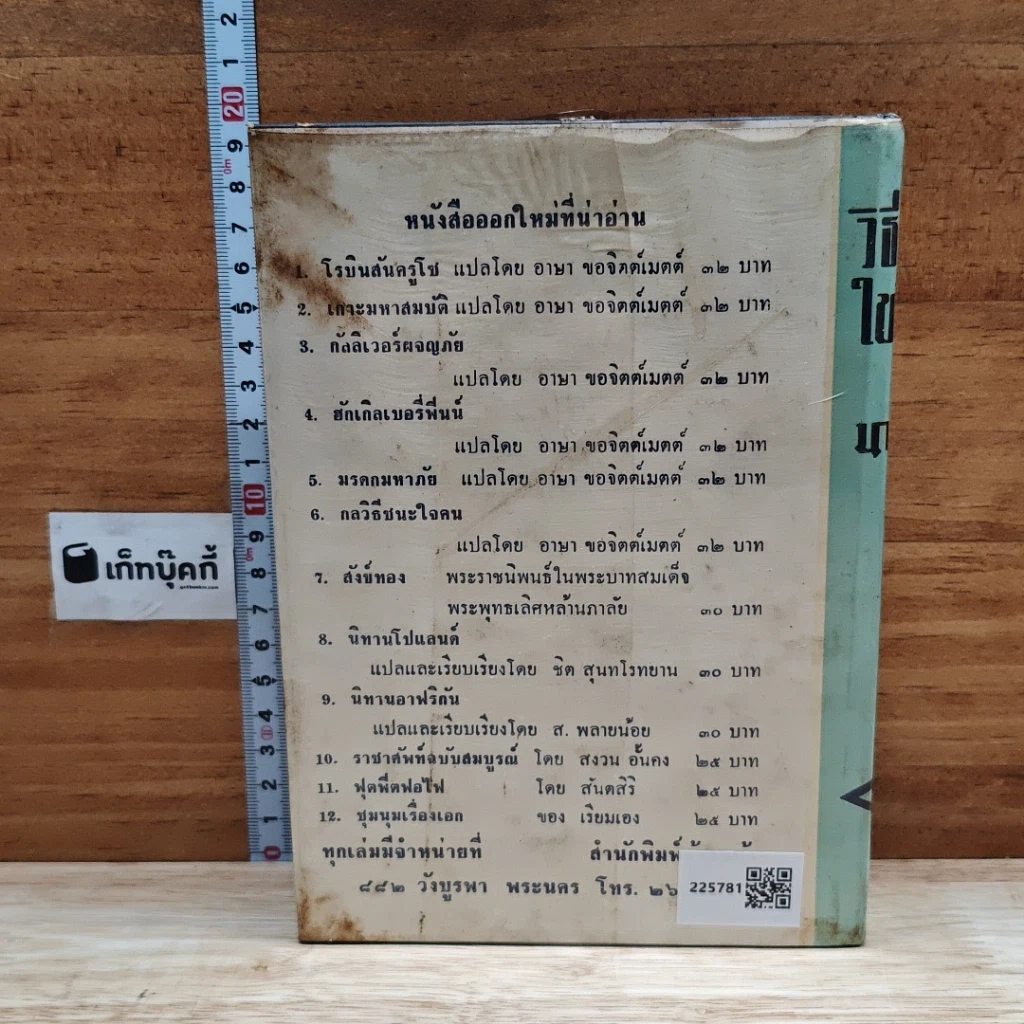 หนังสือออกใหม่ที่น่าอ่าน
1. โรบินสันครูโซ แปลโดย อาษา ขอจิตต์เมตต์ ๓๒ บาท
2. เกาะมหาสมบัติ แปลโดย อาษา ขอจิตต์เมตต์ ๓๒ บาท
3. กัลลิเวอร์ผจญภัย
แปลโดย อาษา ขอจิตต์เมตต์ ๓๒ บาท
4. ฮักเกิลเบอรี่ฟินน์
แปลโดย อาษา ขอจิตต์เมตต์ ๓๒ บาท
5. มรดกมหาภัย แปลโดย อาษา ขอจิตต์เมตต์ ๓๒ บาท
6. กลวิธีชนะใจคน
แปลโดย อาษา ขอจิตต์เมตต์ ๓๒ บาท
7. สังข์ทอง พระราชนิพนธ์ในพระบาทสมเด็จ
พระพุทธเลิศหล้านภาลัย ๓๐ บาท
8. นิทานโปแลนด์
แปลและเรียบเรียงโดย ชิต สุนทโรทยาน ๓๐ บาท
9. นิทานอาฟริกัน
แปลและเรียบเรียงโดย ส. พลายน้อย ๓๐ บาท
10. ราชาศัพท์ฉบับสมบูรณ์ โดย สงวน อั้นคง ๒๕ บาท
11. ฟุตพิตฟอไฟ โดย สันตสิริ ๒๕ บาท
12. ชุมนุมเรื่องเอก ของ เรียมเอง ๒๕ บาท
ทุกเล่มมีจำหน่ายที่ สำนักพิมพ์
๘๘๒ วังบูรพา พระนคร โทร. ๒๖
225781
วิธี
ใช
เก็ทบุ๊คกี้
2 1 20 9 8 7 6 5 4 3 2 1 10 9 8 7 6 5 4 3 2 1 0